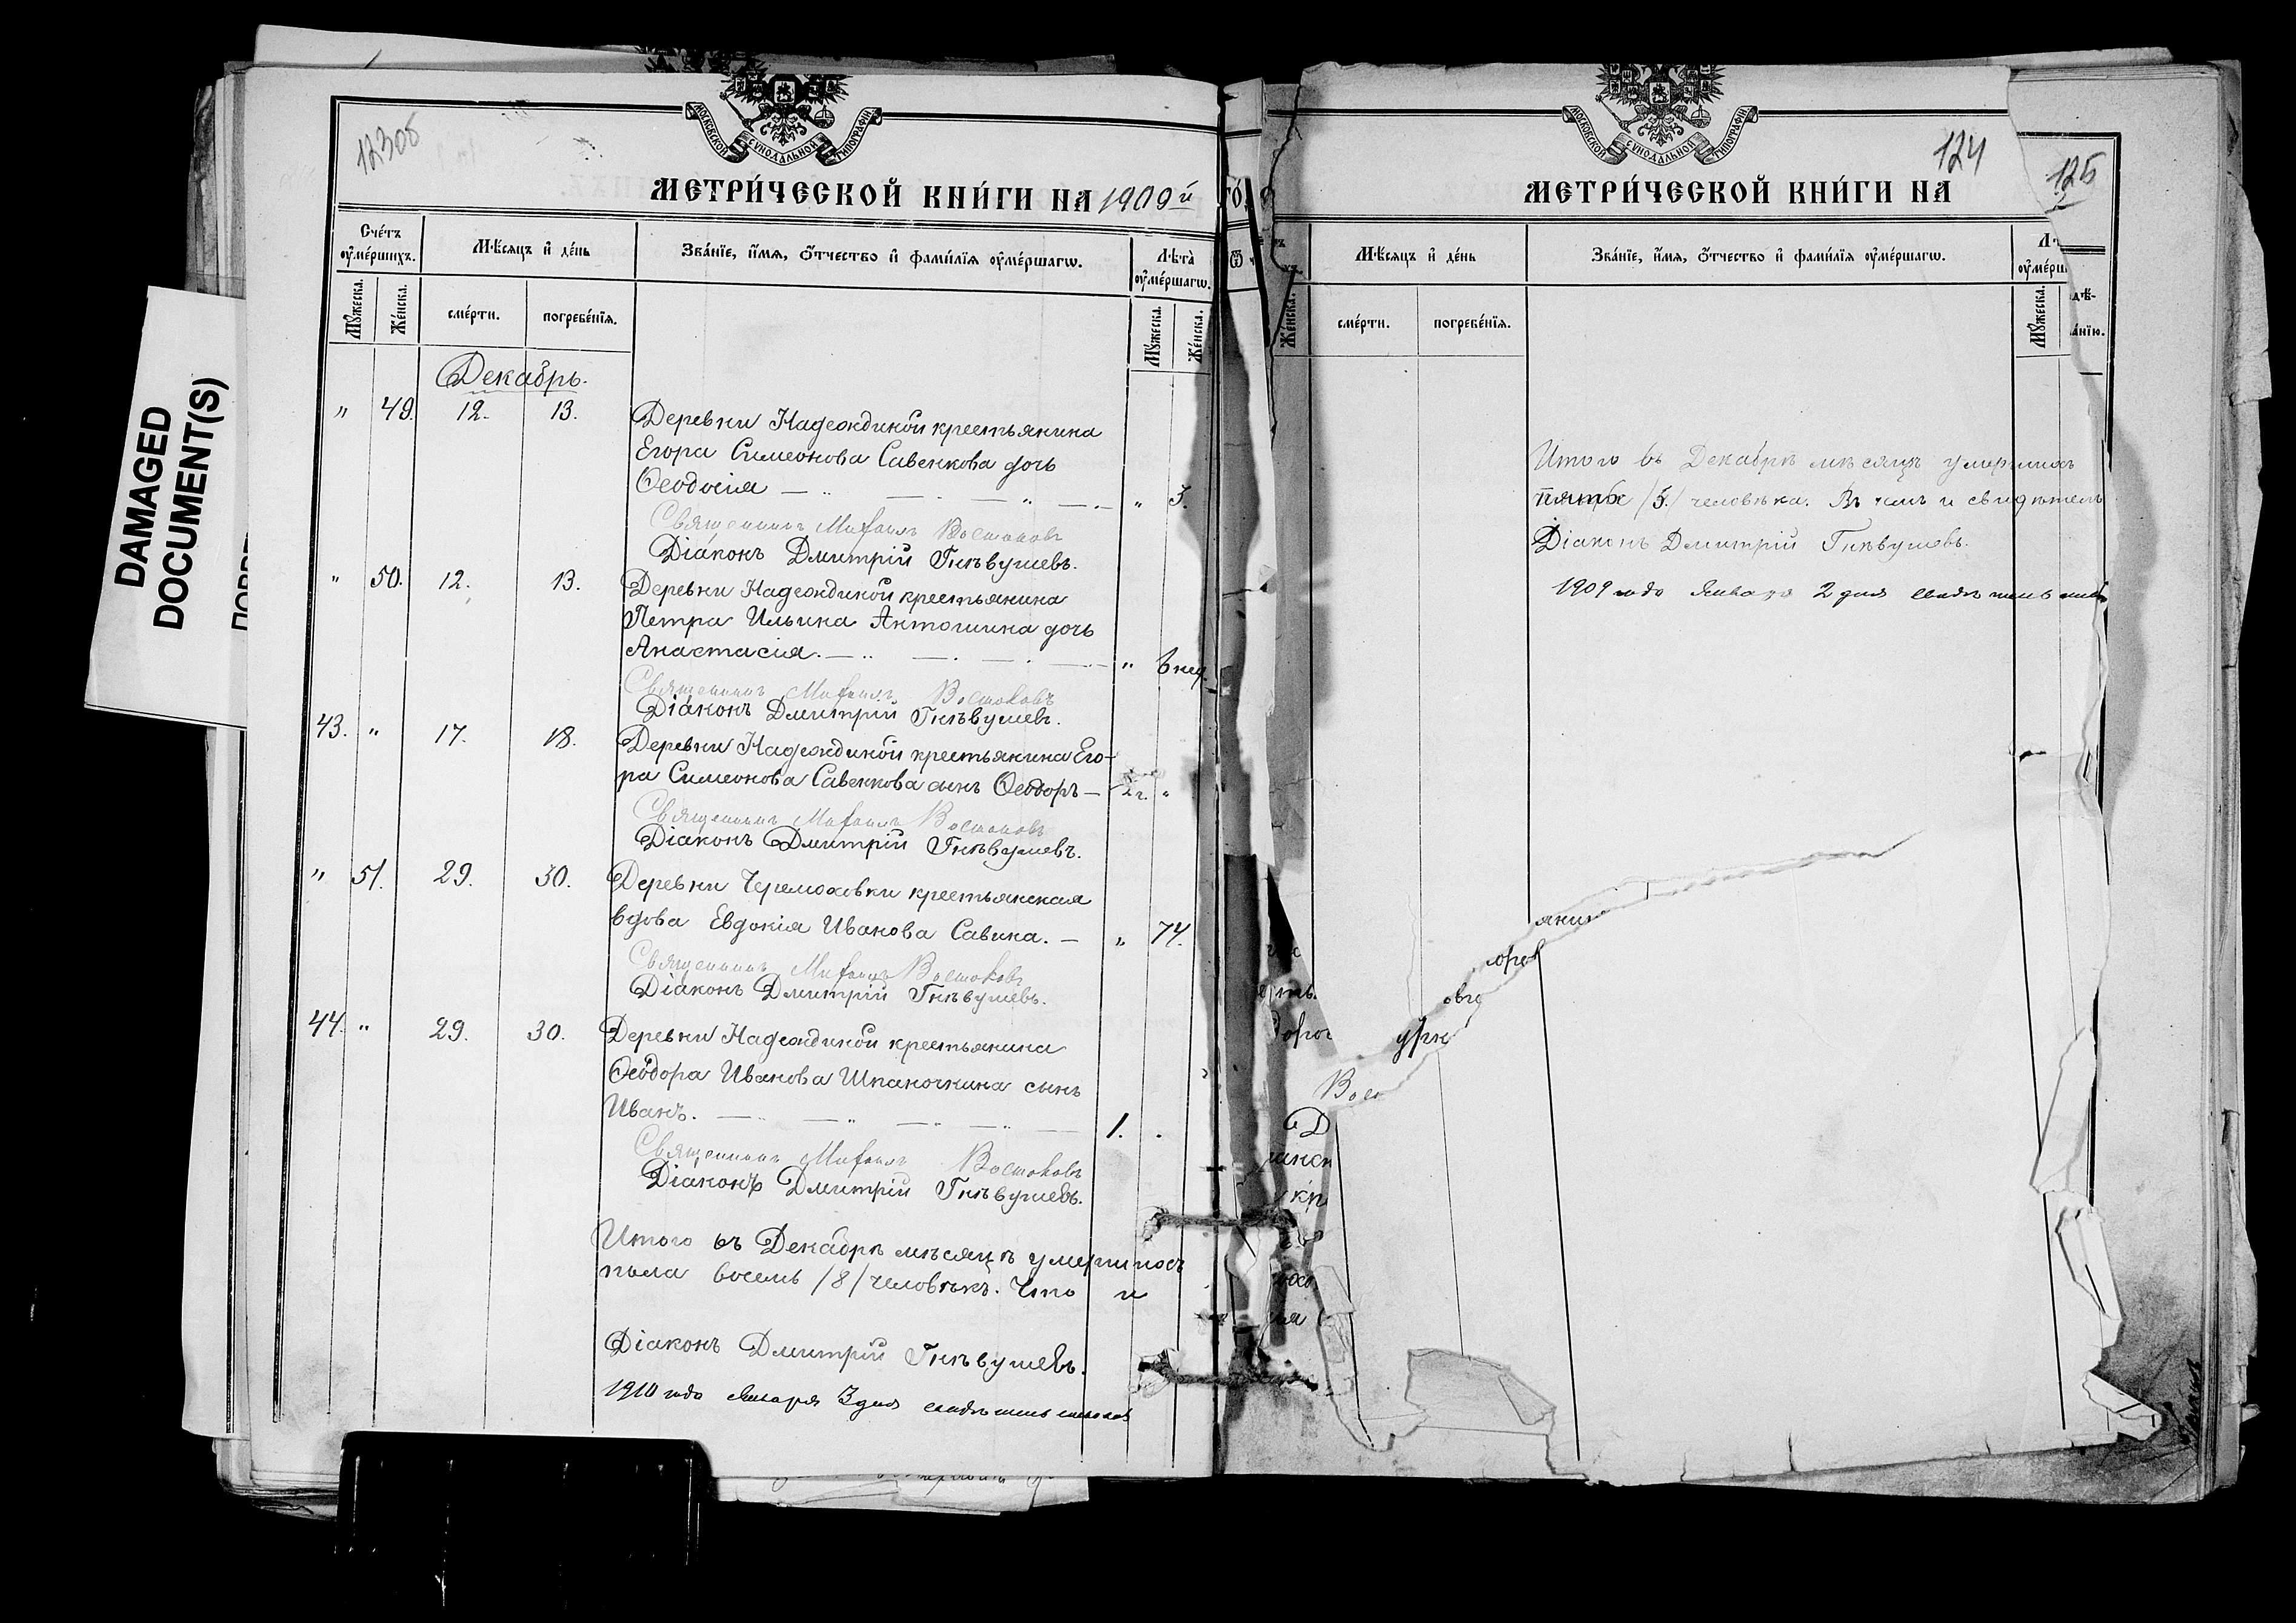 DAMAGED
DOCUMENT(S)
123об
МОСКОВСКОЙ СѴНОДАЛЬНОЙ ТИПОГРАФІИ
МЕТРИ́ЧЕСКОЙ КНИ́ГИ НА 1909й
Сче́тъ
ᲂу҆ме́ршихъ.
Мѣ́сяцъ и҆ де́нь
Зва́нїе, и҆́мя, ѻ҆́тчество и҆ фами́лїя ᲂу҆ме́ршагѡ.
Лѣ́та̀
ᲂу҆ме́ршагѡ.
Мꙋ́жеска.
Же́нска.
сме́рти.
погребе́нїя.
Мꙋ́жеска.
Же́нска.
Декабрь.
" 49. 12. 13. Деревни Надеждиной крестьянина
Егора Симеонова Савенкова дочь
Ѳеодосія " 3.
Священникъ Михаилъ Востоковъ
Діаконъ Дмитрій Гнѣвушевъ.
" 50. 12. 13. Деревни Надеждиной крестьянина
Петра Ильина Антошина дочь
Анастасія. " 6 нед.
Священникъ Михаилъ Востоковъ
Діаконъ Дмитрій Гнѣвушевъ.
43. " 17. 18. Деревни Надеждиной крестьянина Его-
ра Симеонова Савенкова сынъ Ѳеодоръ — 2г. "
Священникъ Михаилъ Востоковъ
Діаконъ Дмитрій Гнѣвушевъ.
" 51. 29. 30. Деревни Черемоховки крестьянская
вдова Евдокія Иванова Савина. — " 74.
Священникъ Михаилъ Востоковъ
Діаконъ Дмитрій Гнѣвушевъ.
44. " 29. 30. Деревни Надеждиной крестьянина
Ѳеодора Иванова Шпаночкина сынъ
Иванъ. 1.
Священникъ Михаилъ Востоковъ
Діаконъ Дмитрій Гнѣвушевъ.
Итого въ Декабрѣ мѣсяцѣ умершихъ
пола восемь /8/ человѣкъ. Что и
Діаконъ Дмитрій Гнѣвушевъ.
1910 года Января 3 дня
МОСКОВСКОЙ СѴНОДАЛЬНОЙ ТИПОГРАФІИ
124
125
МЕТРИ́ЧЕСКОЙ КНИ́ГИ НА
Мѣ́сяцъ и҆ де́нь
Зва́нїе, и҆́мя, ѻ҆́тчество и҆ фами́лїя ᲂу҆ме́ршагѡ.
Же́нска.
сме́рти.
погребе́нїя.
Мꙋ́жеска.
Итого въ Декабрѣ мѣсяцѣ умершихъ
пять /5/ человѣка. Въ чемъ и свидѣтель
Діаконъ Дмитрій Гнѣвушевъ.
1909 года Января 2 дня